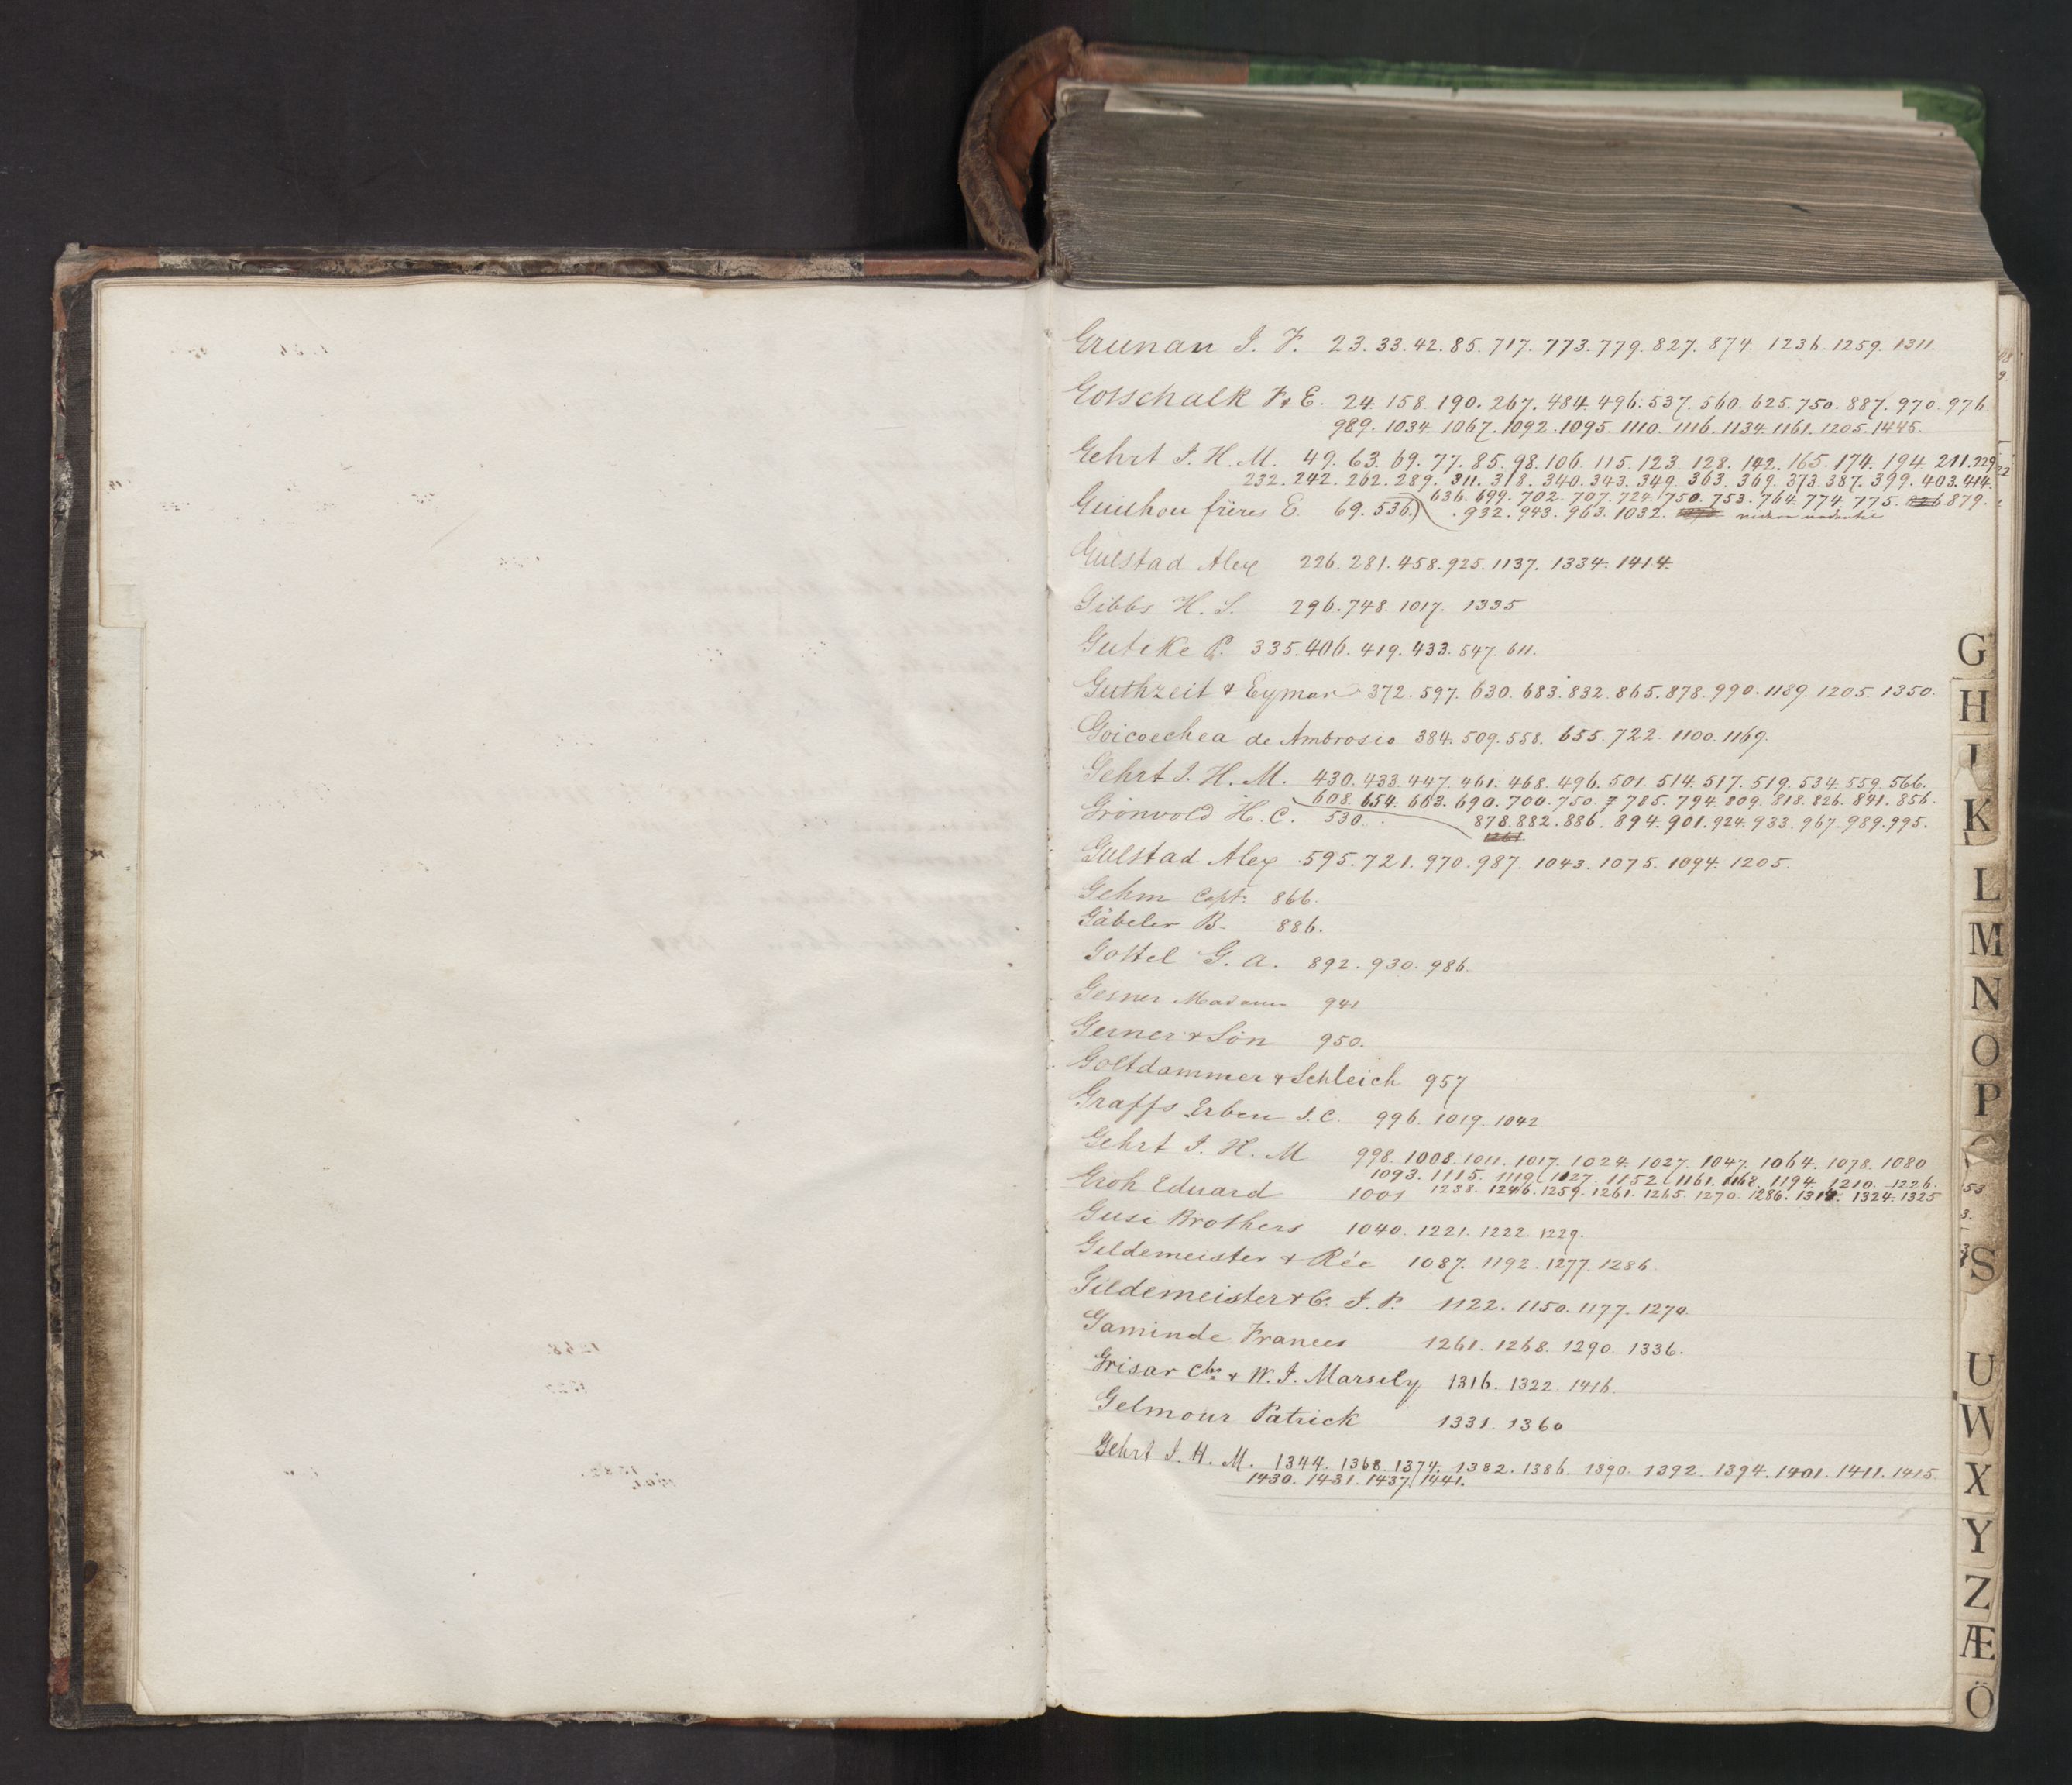 Grunau J. F. 23. 33. 42. 85. 717. 773. 779. 827. 874. 1236. 1259. 1311.
Gotschalk F & E. 24. 158. 190. 267. 484. 496. 537. 560. 625. 750. 887. 970. 976.
989. 1034. 1067. 1092. 1095. 1110. 1116. 1134. 1161. 1205. 1445.
Gehrt J. H. M. 49. 63. 69. 77. 85. 98. 106. 115. 123. 128. 142. 165. 174. 194. 211. 229.
232. 242. 262. 289. 311. 318. 340. 343. 349. 363. 369. 373. 387. 399. 403. 414.
636. 699. 702. 707. 724. 750. 753. 764. 774. 775. 826 879.
Guichou frères E. 69. 536. 932. 943. 963. 1032.
Gulstad Alex 226. 281. 458. 925. 1137. 1334. 1414.
Gibbs H. S. 296. 748. 1017. 1335
Gutike P. 335. 406. 419. 433. 547. 611.
Guthzeit & Eymar 372. 597. 630. 683. 832. 865. 878. 990. 1189. 1205. 1350.
Goicoechea de Ambrosio 384. 509. 558. 655. 722. 1100. 1169.
Gehrt J. H. M. 430. 433. 447. 461. 468. 496. 501. 514. 517. 519. 534. 559. 566.
608. 654. 663. 690. 700. 750. 785. 794. 809. 818. 826. 841. 856.
Grönvold H. C. 530. 878. 882. 886. 894. 901. 924. 933. 967. 989. 995.
1261
Gulstad Alex 595. 721. 970. 987. 1043. 1075. 1094. 1205.
Gehm Capt: 866.
Gäbeler B. 886.
Gottel G. A. 892. 930. 986.
Gesner Madame 941
Gerner & Sön 950.
Goltdammer & Schleich 957
Graffs Erben J. C. 996. 1019. 1042
Gehrt J. H. M 998. 1008. 1011. 1017. 1024. 1027. 1047. 1064. 1078. 1080
1093. 1115. 1119. 1127. 1152. 1161. 1168. 1194. 1210. 1226.
Groh Eduard 1001 1238. 1246. 1259. 1261. 1265. 1270. 1286. 1314. 1324. 1325
Guse Brothers 1040. 1221. 1222. 1229.
Gildemeister & Rée 1087. 1192. 1277. 1286.
Gildemeister & Co. J. P. 1122. 1150. 1177. 1270.
Gaminde Frances 1261. 1268. 1290. 1336.
Grisar Chs. & W. J. Marsily 1316. 1322. 1416.
Gelmour Patrick 1331. 1360
Gehrt J. H. M. 1344. 1368. 1374. 1382. 1386. 1390. 1392. 1394. 1401. 1411. 1415.
1430. 1431. 1437. 1441.
G
H
I
K
L
M
N
O
P
S
U
W
X
Y
Z
Æ
Ö